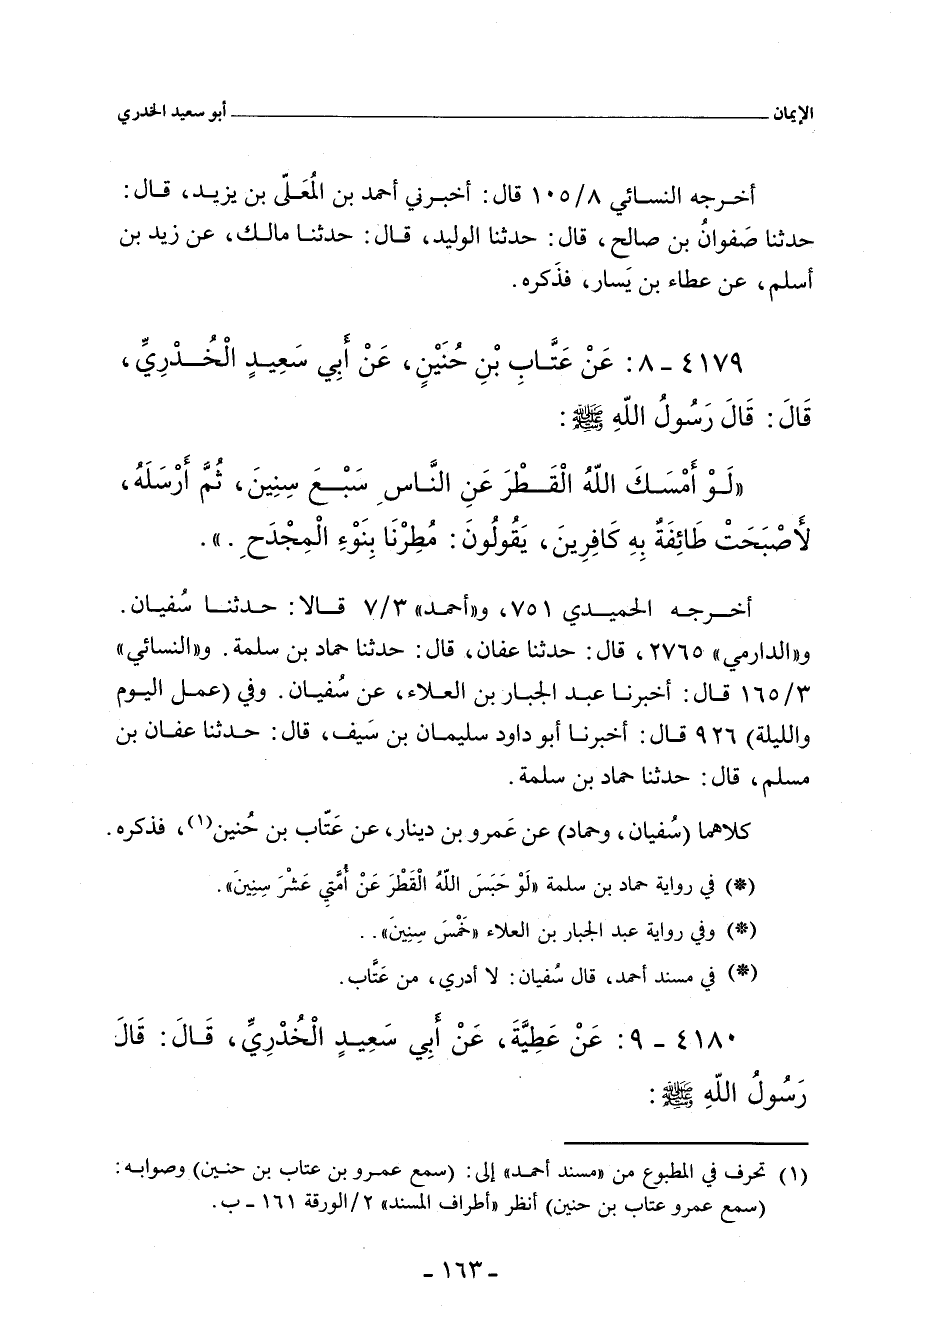 الإيمان ــــــ أبو سعيد الخدري
أخـرجه النسـائي ١٠٥/٨ قال : أخبـرني أحمد بن المُعَلّى بن يزيـد، قـال :
حدثنا صَفوانُ بن صالح، قال : حدثنا الوليد، قـال : حدثنـا مالـك، عن زيد بن
أسلم، عن عطاء بن يَسار، فذَكره .
٤١٧٩ ـ ٨ : عَنْ عَتَّابِ بْنِ حُنَيْنٍ، عَنْ أَبِي سَعِيـدٍ الْخُـدْرِيِّ،
قَالَ : قَالَ رَسُولُ اللّهِ ﷺ :
«لَـوْ أَمْسَـكَ اللّهُ الْقَـطْرَ عَنِ النَّاسِ سَبْـعَ سِنِينَ، ثُمَّ أَرْسَلَهُ،
لَأَصْبَحَتْ طَائِفَةٌ بِهِ كَافِرِينَ، يَقُولُونَ : مُطِرْنَا بِنَوْءِ الْمِجْدَحِ .» .
أخـرجـه الحميـدي ٧٥١، و«أحمد» ٧/٣ قـالا : حدثنـا سُفيان .
و«الدارمي» ٢٧٦٥، قال : حدثنا عفان، قال : حدثنا حماد بن سلمة . و«النسائي»
١٦٥/٣ قـال : أخبرنا عبـد الجبار بن العـلاء، عن سُفيـان . وفي (عمـل اليوم
والليلة) ٩٢٦ قـال : أخبرنـا أبو داود سليمـان بن سَيف، قال : حـدثنا عفـان بن
مسلم، قال : حدثنا حماد بن سلمة .
كلاهما (سُفيان، وحماد) عن عَمرو بن دينار، عن عَتّاب بن حُنين(١)، فذكره .
(*) في رواية حماد بن سلمة «لَوْ حَبَسَ اللّهُ الْقَطْرَ عَنْ أُمَّتِي عَشْرَ سِنِينَ» .
(*) وفي رواية عبد الجبار بن العلاء «خَمْسَ سِنِينَ» . .
(*) في مسند أحمد، قال سُفيان : لا أدري، من عَتَّاب .
٤١٨٠ ـ ٩ : عَنْ عَطِيَّةَ، عَنْ أَبِي سَعِيـدٍ الْخُدْرِيِّ، قَـالَ : قَالَ
رَسُولُ اللّهِ ﷺ :
(١) تحرف في المطبوع من «مسند أحمد» إلى : (سمع عمـرو بن عتاب بن حنـين) وصوابـه :
(سمع عمرو عتاب بن حنين) أنظر «أطراف المسند» ٢/الورقة ١٦١ ـ ب .
- ١٦٣ -